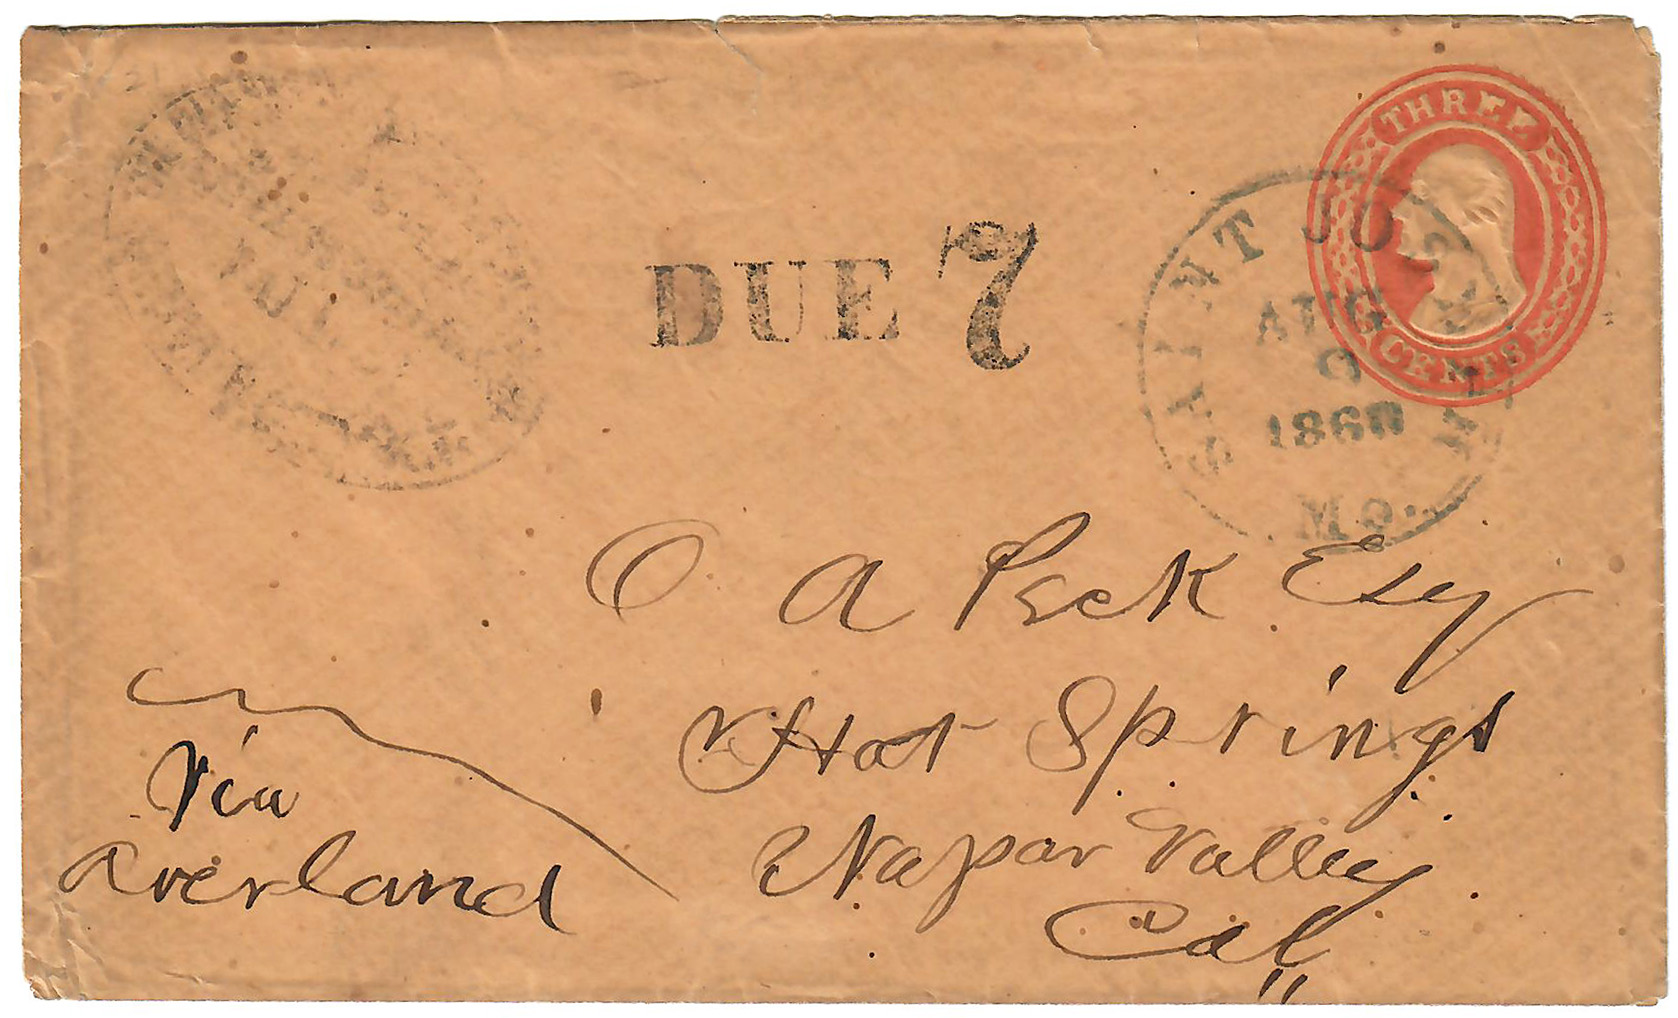 THREE
CENTS
SAINT JOSEPH
AUG
9
1860
MO.
DUE 7
O A Peck Esq
Hot Springs
Napa Valley
Cal
Via
Overland